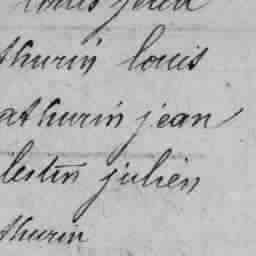 louis
thurin louis
athurin jean
lestin julien
thurin